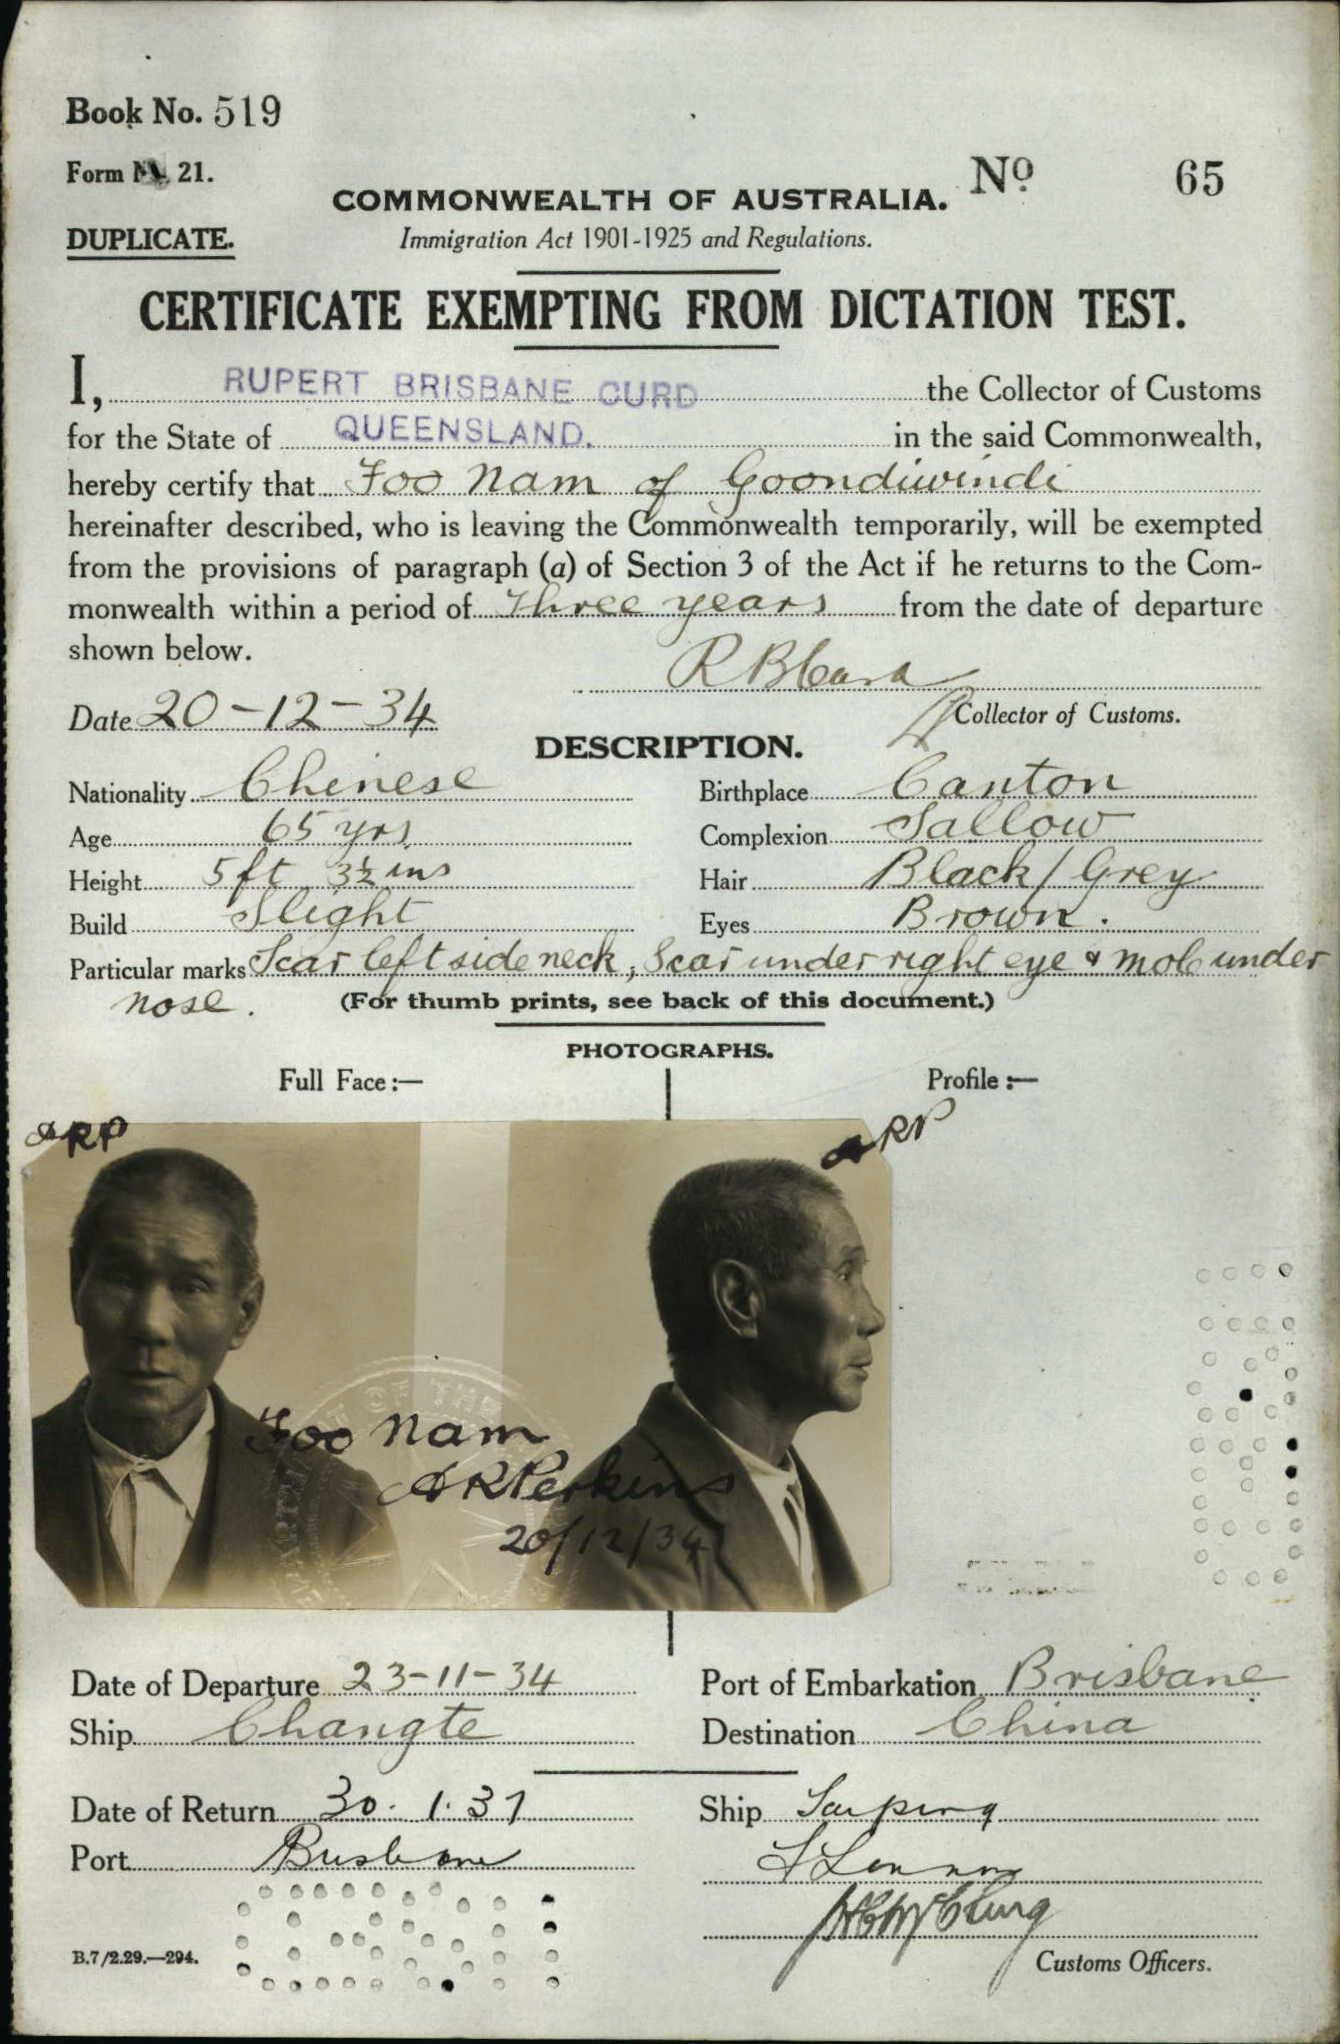 Book No. 519
Form 21.
DUPLICATE.
COMMONWEALTH OF AUSTRALIA. No 65
Immigration Act 1901-1925 and Regulations.
CERTIFICATE EXEMPTING FROM DICTATION TEST.
I, RUPERT BRISBANE CURD the Collector of Customs
for the State of QUEENSLAND. in the said Commonwealth,
hereby certify that Foo Nam of Goondiwindi
hereinafter described, who is leaving the Commonwealth temporarily, will be exempted
from the provisions of paragraph (a) of Section 3 of the Act if he returns to the Com-
monwealth within a period of three years from the date of departure
shown below.
R B Curd
Date 20-12-34 Collector of Customs.
DESCRIPTION.
Nationality Chinese Birthplace Canton
Age 65 yrs Complexion Sallow
Height 5 ft 3½ ins Hair Black/Grey
Build Slight Eyes Brown.
Particular marks Scar left side neck, Scar under right eye & mole under
nose. (For thumb prints, see back of this document.)
PHOTOGRAPHS.
Full Face:— Profile:—
ARP ARP
Foo Nam
A R Perkins
20/12/34
Date of Departure 23-11-34 Port of Embarkation Brisbane
Ship Changte Destination China
Date of Return 30.1.37 Ship Taiping
Port Brisbane
Customs Officers.
B.7/2.29.—294.